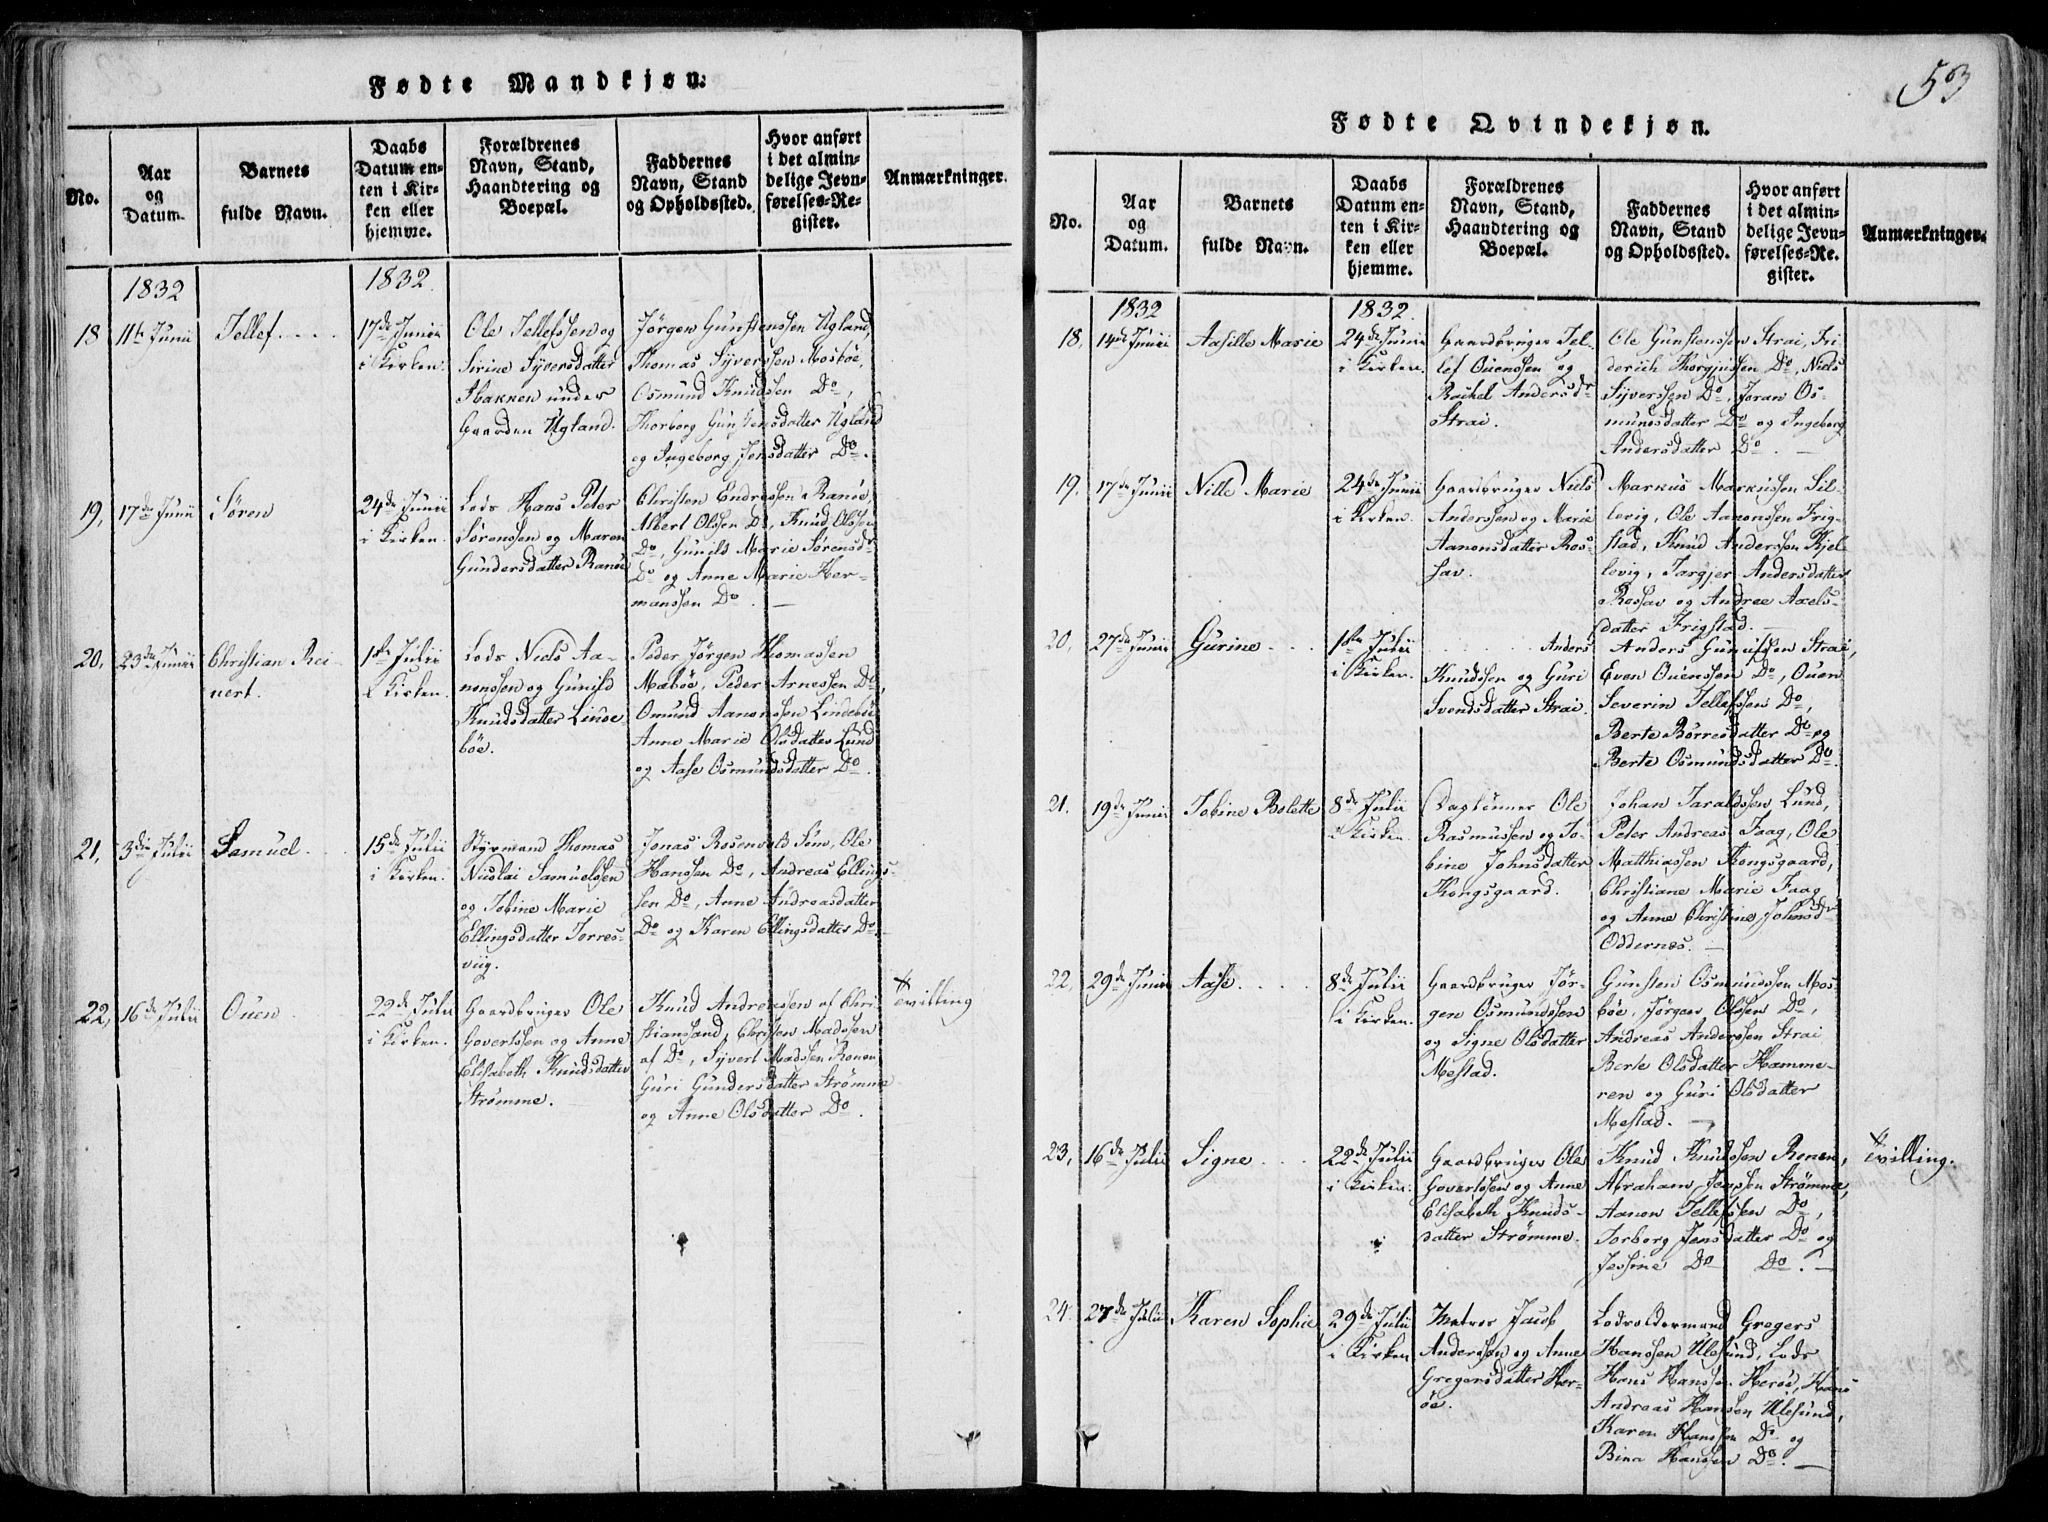 Fødte Mandkjøn.
No.
Aar
og
Datum.
Barnets
fulde Navn.
Daabs
Datum en-
ten i Kir-
ken eller
hjemme.
Forældrenes
Navn, Stand,
Haandtering og
Boepæl.
Faddernes
Navn, Stand
og Opholdssted.
Hvor anført
i det almin-
delige Jevn-
førelses-Re-
gister.
Anmærkninger.
1832
1832.
18
11te Junii
Tellef
17de Junii
i Kirken.
Ole Tellefsen og
Sirine Syversdatter
Hakken under
Gaarden Ugland.
Jörgen Gunstenssen Ugland,
Thomas Syverssen Mosböe,
Osmund Knudssen Do,
Thorborg Gunstensdatter Ugland
og Ingeborg Jensdatter Do.
19,
17de Junii
Sören
24de Junii
i Kirken.
Lods Hans Peter
Sörenssen og Maren
Gundersdatter Randöe
Christen Endressen Randöe,
Albert Olssen Do, Knud Olssen
Do, Gunild Marie Sörensdr
Do og Anne Marie Her-
manssen Do. —
20,
23de Junii
Christian Rei-
nert.
1ste Julii
i Kirken.
Lods Niels Aa-
nonssen og Gunild
Knudsdatter Linde
böe.
Peder Jörgen Thomassen
Mæböe, Peder Arnessen Do,
Omund Aanonssen Lindeböe
Anne Marie Olsdatter Lund
og Aase Osmundsdatter Do.
21,
3die Julii
Samuel
15de Julii
i Kirken.
Styrmand Thomas
Nicolai Samuelssen
og Tobine Marie
Ellingsdatter Torres-
viig.
Jonas Rosenvold Söns, Ole
Hanssen Do, Andreas Ellings-
sen Do, Anne Andreasdatter
Do og Karen Ellingsdatter Do. —
22,
16de Julii
Ouen
22de Julii
i Kirken.
Gaardbruger Ole
Govertssen og Anne
Elisabeth Knudsdatter
Strömme. —
Knud Andreassen af Chri-
stiansand, Christen Madssen
af Do, Syvert Madssen Ronen
Guri Gundersdatter Strömme
og Anne Olsdatter Do.
Tvilling
53
Fødte Qvindekjøn.
No.
Aar
og
Datum.
Barnets
fulde Navn.
Daabs
Datum en-
ten i Kir-
ken eller
hjemme.
Forældrenes
Navn, Stand,
Haandtering og
Boepæl.
Faddernes
Navn, Stand
og Opholdssted.
Hvor anført
i det almin-
delige Jevn-
førelses-Re-
gister.
Anmærkninger.
1832
1832.
18,
14de Junii
Aasille Marie
24de Junii
i Kirken.
Gaardbruger Tel-
lef Ouenssen og
Rachel Andersdr
Strai.
Ole Gunstenssen Strai, Fri-
derich Thorgjussen Do, Niels
Syverssen Do, Joran Os-
mundsdatter Do og Ingeborg
Andersdatter Do. —
19.
17de Junii
Nille Marie
24de Junii
i Kirken.
Gaardbruger Niels
Anderssen og Marie
Aanonsdatter Ros-
sav.
Markus Markussen Sil-
levig, Ole Aanonssen Frig-
stad, Knud Anderssen Kjel-
levig, Targjer Andersdatter
Rossav og Andrea Axels-
datter Frigstad. —
20,
27de Junii
Gurine
1ste Julii
i Kirken.
Anders
Knudssen og Guri
Svendsdatter Strai.
Anders Gunulfsen Strai,
Even Ouenssen Do, Ouen
Severin Tellefssen Do,
Berte Börresdatter Do og
Berte Osmundsdatter Do.
21.
19de Junii
Tobine Bolette
8de Julii
i Kirken.
Daglönner Ole
Rasmussen og To-
bine Johnsdatter
Kongsgaard.
Johan Taraldssen Lund,
Peter Andreas Faag, Ole
Matthiassen Kongsgaard,
Christiane Marie Faag
og Anne Christine Johnsdr
Oddernes. —
22,
29de Junii
Aase
8de Julii
i Kirken.
Gaardbruger Jör-
gen Osmundssen
og Signe Olsdatter
Mestad.
Gunsten Osmundssen Mos-
böe, Jörgen Olssen Do,
Andreas Anderssen Strai
Berte Olsdatter Hamme-
ren og Guri Olsdatter
Mestad. —
23,
16de Julii
Signe
22de Julii
i Kirken.
Gaardbruger Ole
Govertssen og Anne
Elisabeth Knuds-
datter Strömme.
Knud Knudssen Ronen,
Abraham Jepssen Strömme,
Aanon Tellefssen Do,
Torborg Jensdatter Do og
Jessine Do Do. —
Tvilling.
24.
27de Julii
Karen Sophie
29de Julii
i Kirken
Matros Jacob
Anderssen og Anne
Gregersdatter Her-
öe.
Lodsoldermand Gregers
Hanssen Ulesund, Lods
Hans Hanssen Heröe, Hans
Andreas Hanssen Ulesund,
Karen Hanssen Do og
Bina Hansen Do. —